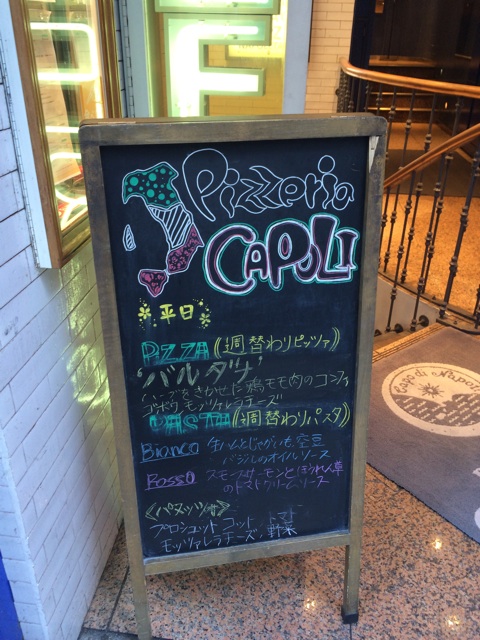 Pizzeria
CAPOLI
平日
PIZZA (週替わりピッツァ)
ハーブをきかせた鶏モモ肉のコンフィ
ゴボウ モッツァレラチーズ
PASTA (週替わりパスタ)
Bianco 生ハムとじゃがいも 空豆
バジルのオイルソース
Rosso スモークサーモンとほうれん草
のトマトクリームソース
プロシュット コット トマト
モッツァレラチーズ、野菜